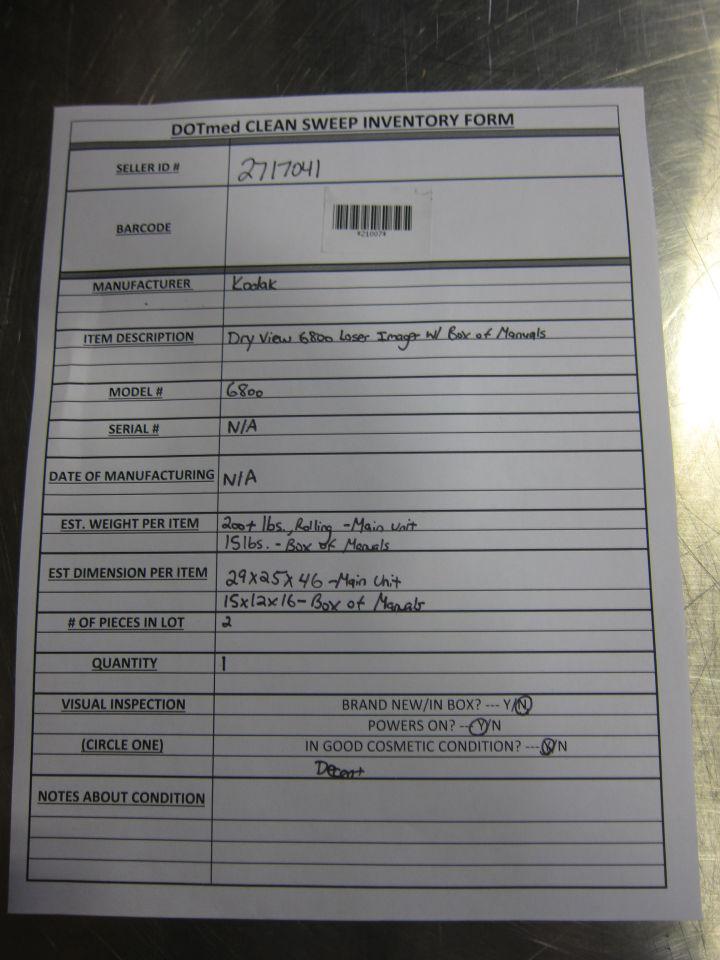 DOTmed CLEAN SWEEP INVENTORY FORM
SELLER ID # 2717041
BARCODE
*21007*
MANUFACTURER Kodak
ITEM DESCRIPTION Dry View 6800 Laser Imager W/ Box of Manuals
MODEL # 6800
SERIAL # N/A
DATE OF MANUFACTURING N/A
EST. WEIGHT PER ITEM 200+ lbs., Rolling - Main Unit
15 lbs. - Box of Manuals
EST DIMENSION PER ITEM 29x25x46 - Main Unit
15x12x16 - Box of Manuals
# OF PIECES IN LOT 2
QUANTITY 1
VISUAL INSPECTION BRAND NEW/IN BOX? --- Y/N
POWERS ON? --- Y/N
(CIRCLE ONE) IN GOOD COSMETIC CONDITION? --- Y/N
Decent
NOTES ABOUT CONDITION